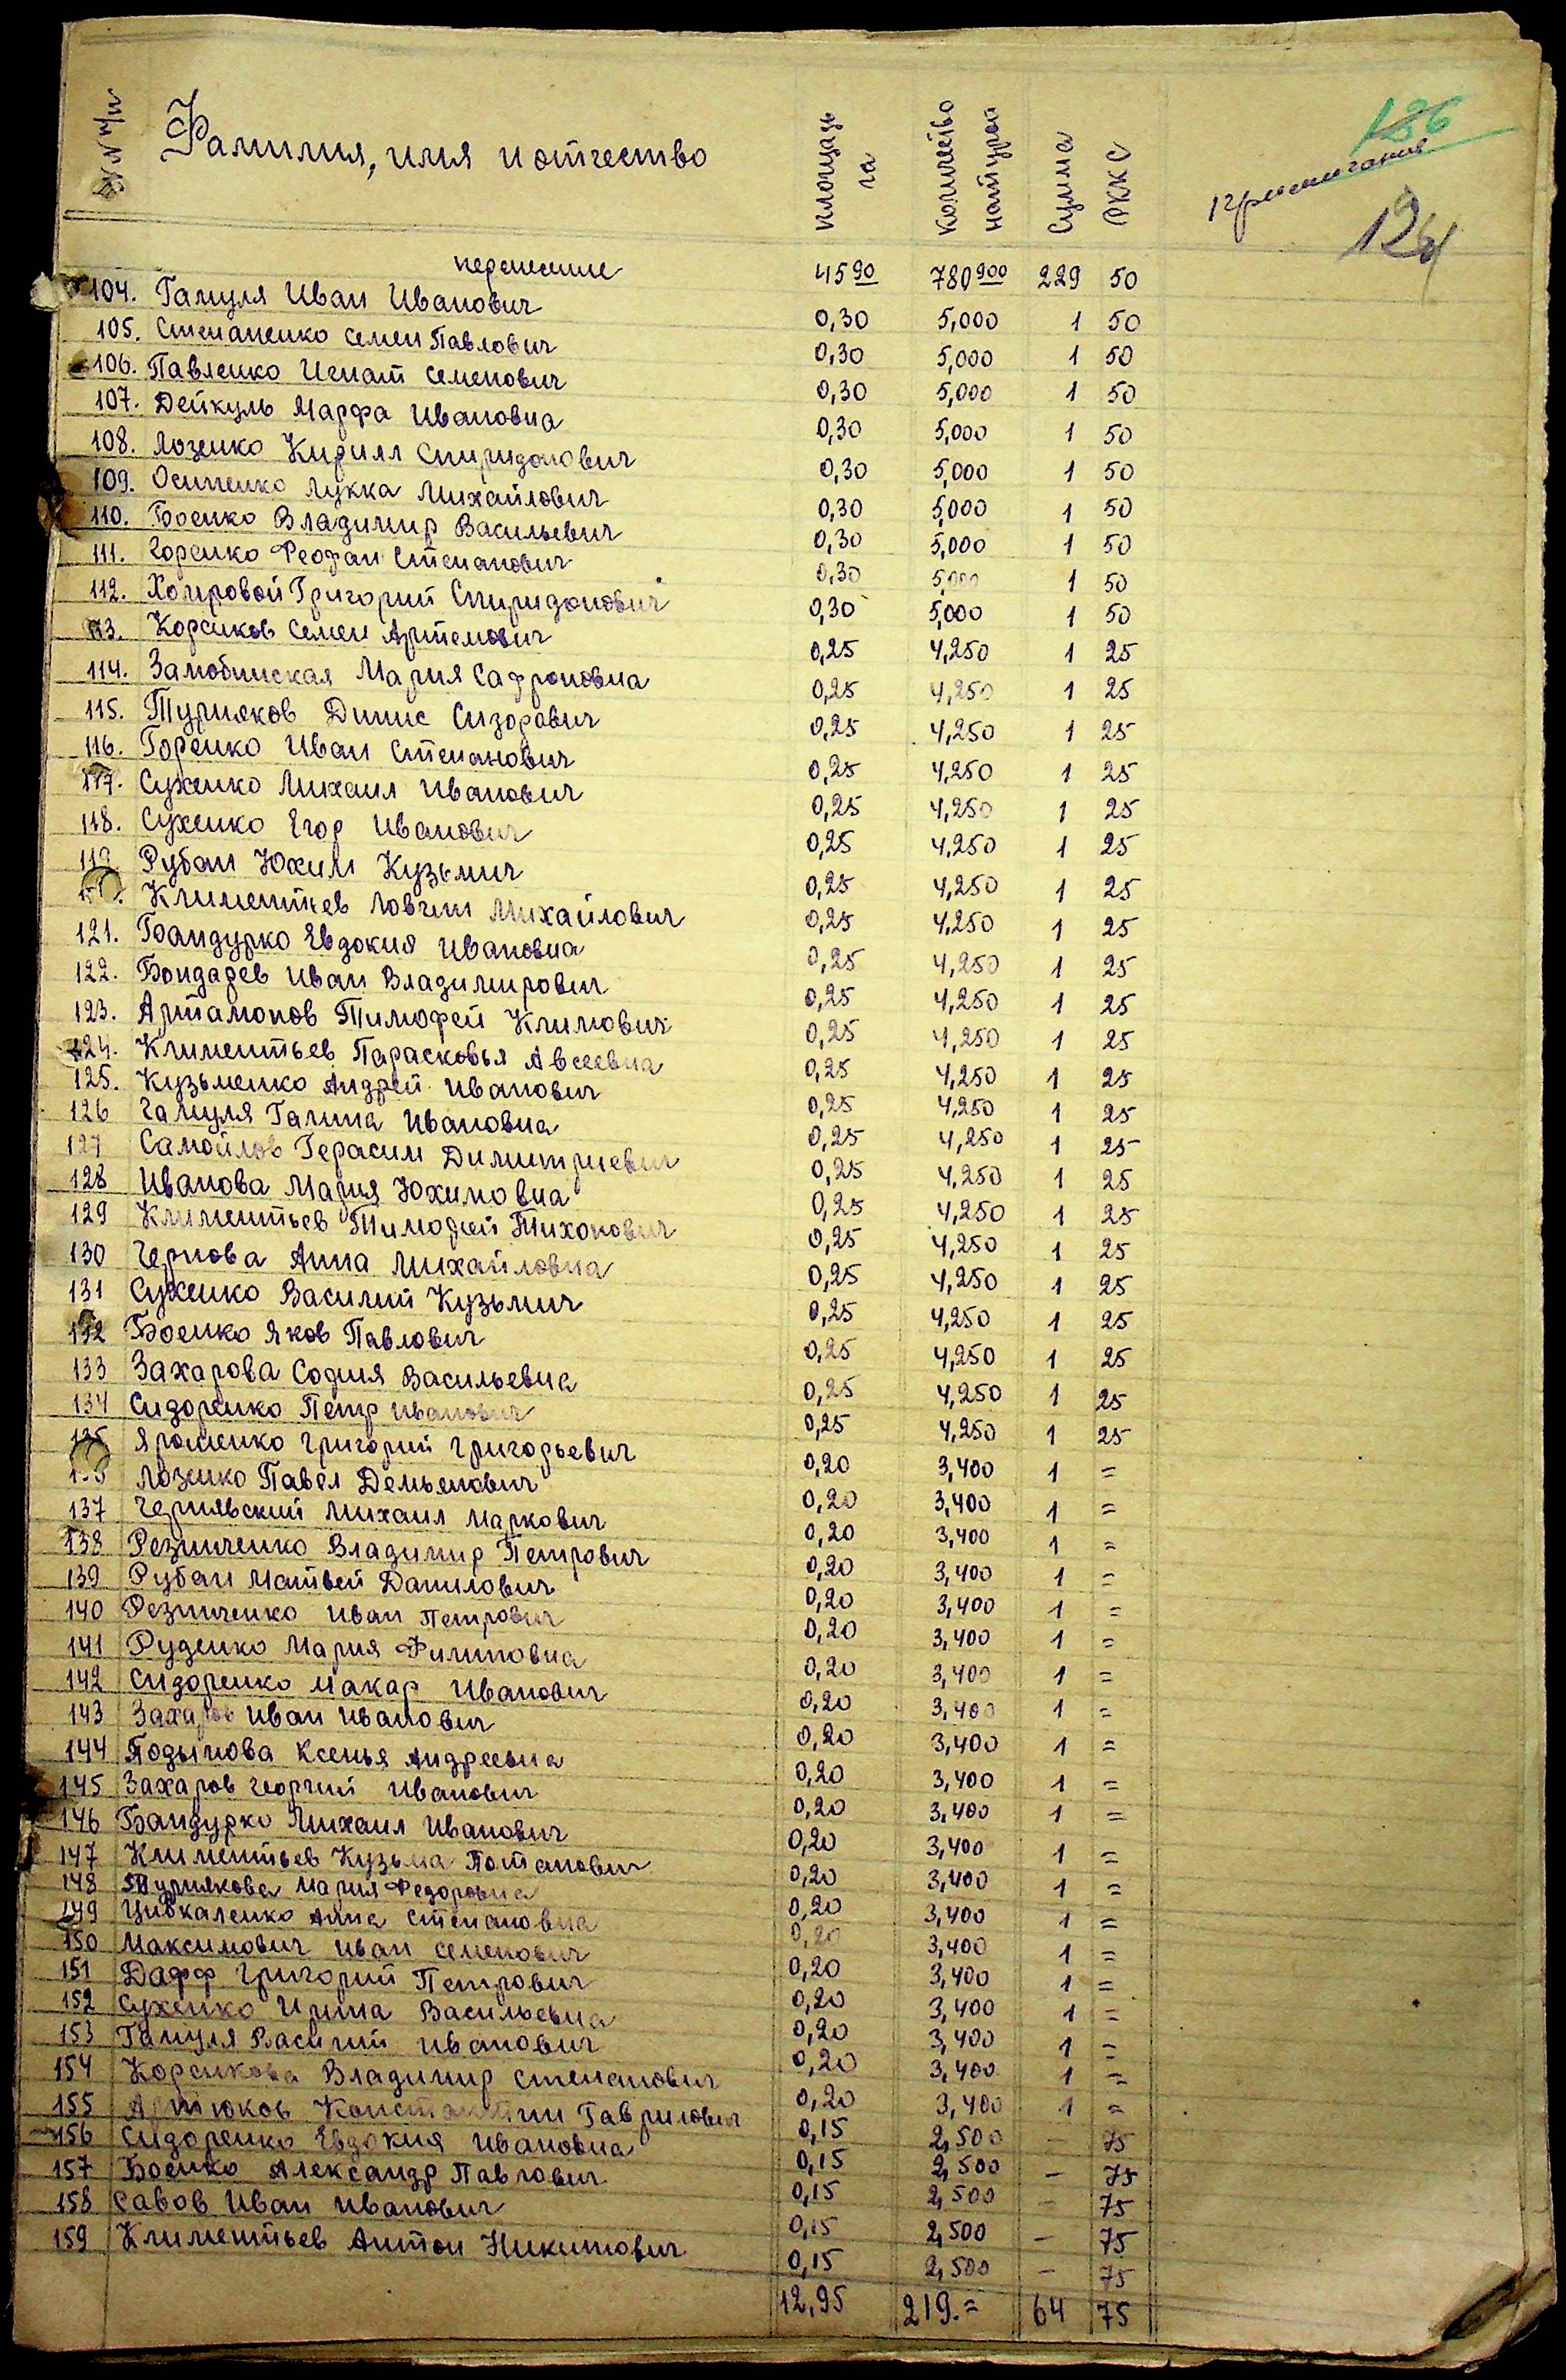 №№ п/п Фамилия, имя и отчество площадь га количество натурой Сумма РККС примечание
126
124
перенесение 45 90 780 900 229 50
104. Гамуля Иван Иванович 0,30 5,000 1 50
105. Степаненко Семен Павлович 0,30 5,000 1 50
106. Павленко Игнат Семенович 0,30 5,000 1 50
107. Дейкуль Марфа Ивановна 0,30 5,000 1 50
108. Лозенко Кирилл Спиридонович 0,30 5,000 1 50
109. Осипенко Лукка Михайлович 0,30 5,000 1 50
110. Боенко Владимир Васильевич 0,30 5,000 1 50
111. Горенко Феофан Степанович 0,30 5,000 1 50
112. Хомровой Григорий Спиридонович 0,30 5,000 1 50
113. Корсиков Семен Артемович 0,25 4,250 1 25
114. Замобинская Мария Сафроновна 0,25 4,250 1 25
115. Турияков Динис Сизоравич 0,25 4,250 1 25
116. Горенко Иван Степанович 0,25 4,250 1 25
117. Сухенко Михаил Иванович 0,25 4,250 1 25
118. Сухенко Егор Иванович 0,25 4,250 1 25
119 Рубан Юхим Кузьмич 0,25 4,250 1 25
Климентьев Михайлович 0,25 4,250 1 25
121. Бандурко Евдокия Ивановна 0,25 4,250 1 25
122. Бондарев Иван Владимирович 0,25 4,250 1 25
123. Артамонов Тимофей Климович 0,25 4,250 1 25
124. Климентьев Парасковья Авсеевна 0,25 4,250 1 25
125. Кузьменко Андрей Иванович 0,25 4,250 1 25
126 Гамуля Галина Ивановна 0,25 4,250 1 25
127 Самойлов Герасим Димитриевич 0,25 4,250 1 25
128 Иванова Мария Юхимовна 0,25 4,250 1 25
129 Климентьев Тимофей Тихонович 0,25 4,250 1 25
130 Чернова Анна Михайловна 0,25 4,250 1 25
131 Сухенко Василий Кузьмич 0,25 4,250 1 25
132 Боенко Яков Павлович 0,25 4,250 1 25
133 Захарова София Васильевна 0,25 4,250 1 25
134 Сидоренко Петр Иванович 0,25 4,250 1 25
135 Ярошенко Григорий Григорьевич 0,20 3,400 1 =
Лозенко Павел Демьянович 0,20 3,400 1 =
137 Чернявский Михаил Маркович 0,20 3,400 1 =
138 Резниченко Владимир Петрович 0,20 3,400 1 =
139 Рубан Матвей Данилович 0,20 3,400 1 =
140 Резниченко Иван Петрович 0,20 3,400 1 =
141 Руденко Мария Филиповна 0,20 3,400 1 =
142 Сидоренко Макар Иванович 0,20 3,400 1 =
143 Захаров Иван Иванович 0,20 3,400 1 =
144 Подымова Ксенья Андреевна 0,20 3,400 1 =
145 Захаров Георгий Иванович 0,20 3,400 1 =
146 Бандурко Михаил Иванович 0,20 3,400 1 =
147 Климентьев Кузьма Потапович 0,20 3,400 1 =
148 Туриякова Мария Федоровна 0,20 3,400 1 =
149 Цибкаленко Анна Степановна 0,20 3,400 1 =
150 Максимович Иван Семенович 0,20 3,400 1 =
151 Дафф Григорий Петрович 0,20 3,400 1 =
152 Сухенко Ирина Васильевна 0,20 3,400 1 =
153 Гамуля Василий Иванович 0,20 3,400 1 =
154 Корсикова Владимир Степанович 0,20 3,400 1 =
155 Артюков Константин Гаврилович 0,15 2,500 — 75
156 Сидоренко Евдокия Ивановна 0,15 2,500 — 75
157 Боенко Александр Павлович 0,15 2,500 — 75
158 Савов Иван Иванович 0,15 2,500 — 75
159 Климентьев Антон Никитович 0,15 2,500 — 75
12,95 219.= 64 75